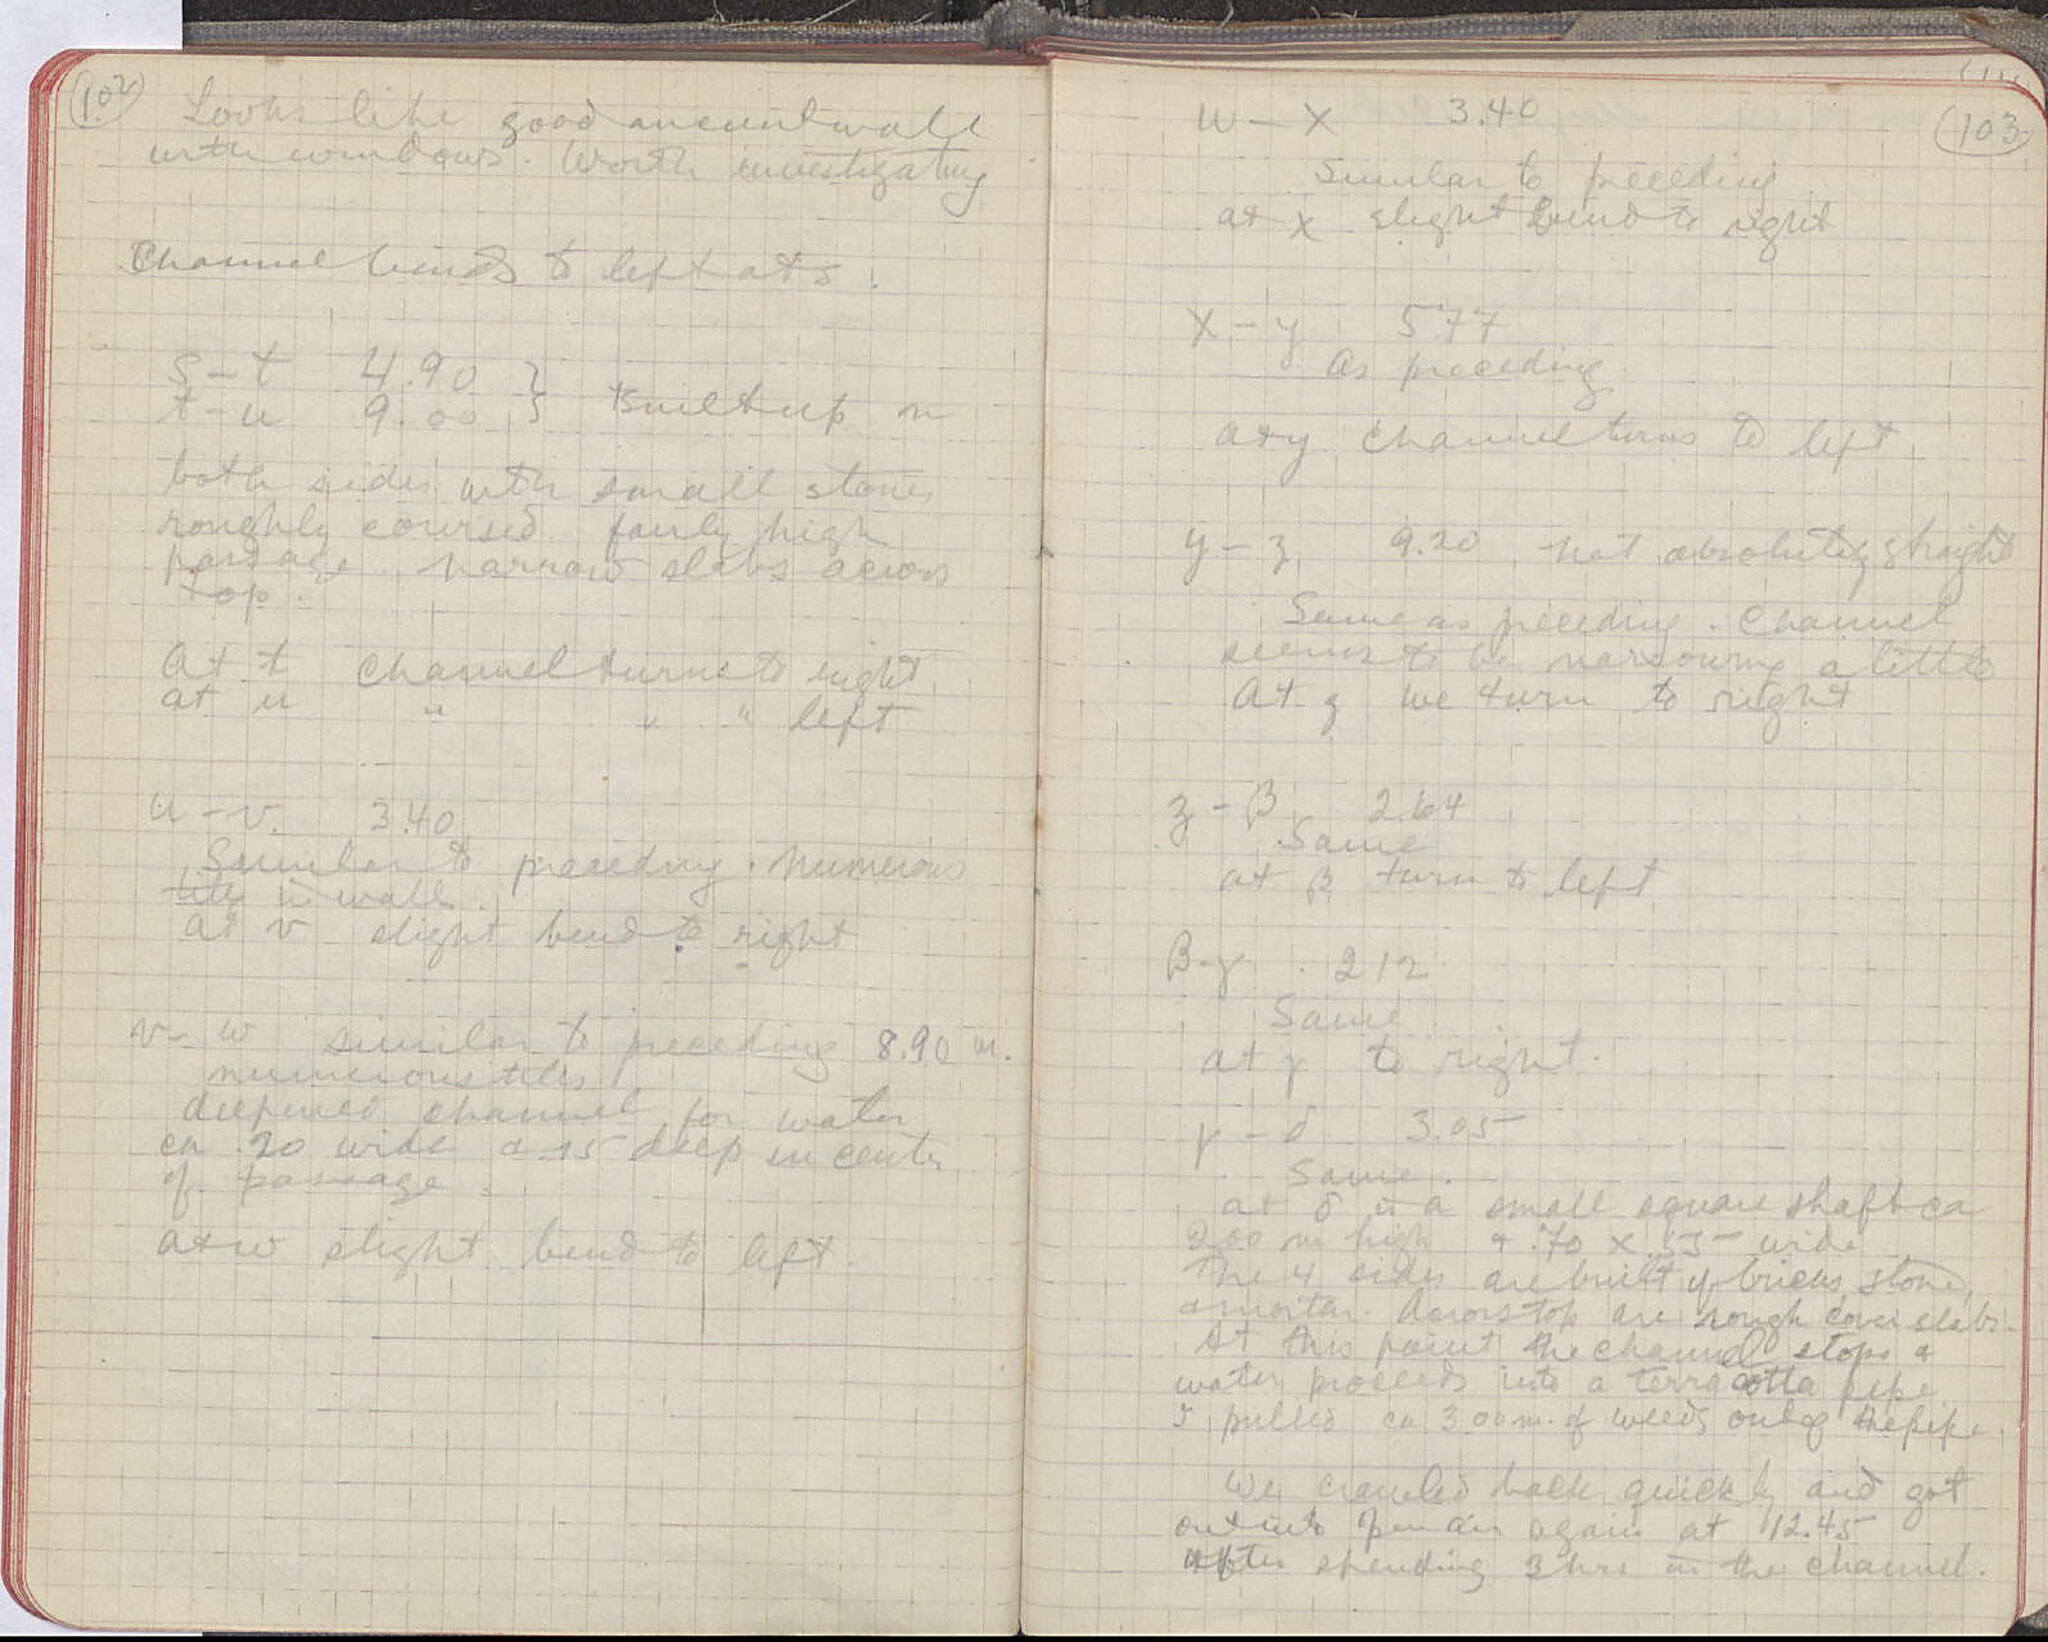 102
Looks like good ancient wall
with windows. Worth investigating
Channel bends to left at s.
s – t 4.90 }
t – u 9.00 } Built up on
both sides with small stones
roughly coursed. fairly high
passage. narrow slabs across
top.
At t channel turns to right.
at u " " " left
u – v. 3.40
Similar to preceding. Numerous
tiles in walls.
at v slight bend to right
v – w similar to preceding 8.90 m.
numerous tiles
deepened channel for water
ca .20 wide & .15 deep in center
of passage.
at w slight bend to left.
103
w – x 3.40
Similar to preceding
at x slight bend to right
x – y 5.77
As preceding
at y channel turns to left
y – z 9.20 not absolutely straight
Same as preceding. Channel
seems to be narrowing a little
At z we turn to right
z – β 2.64
Same
at β turn to left
β-γ 2.12
Same
at γ to right.
γ – δ 3.05
Same.
at δ is a small square shaft ca
2.00 m high & .70 x .55 wide
The 4 sides are built of bricks, stone,
& mortar. Across top are rough cover slabs.
At this point the channel stops &
water proceeds into a terracotta pipe
I pulled ca 3.00 m. of weeds out of the pipe.
We crawled back quickly and got
out into open air again at 12.45
after spending 3 hrs in the channel.